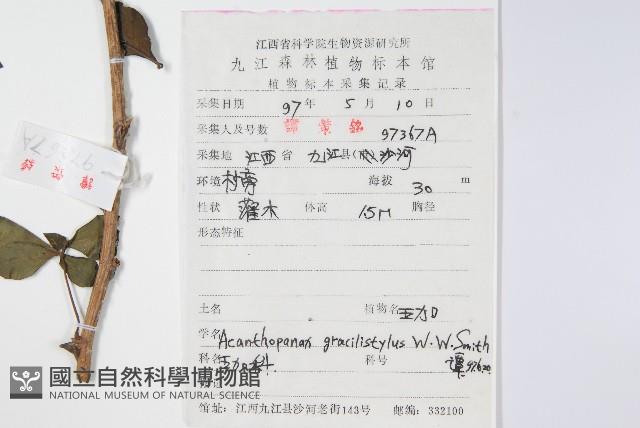 江西省科学院生物资源研究所
九江森林植物标本馆
植物标本采集记录
采集日期 97年 5月 10日
采集人及号数 谭策铭 97367A
采集地 江西省 九江县(市)沙河
环境 村旁 海拔 30 m
性状 灌木 体高 1.5M 胸径
形态特征
土名 植物名 五加
学名 Acanthopanax gracilistylus W.W.Smith
科名 五加科 科号
馆址：江西九江县沙河老街143号 邮编：332100
97367A
谭策铭
國立自然科學博物館
NATIONAL MUSEUM OF NATURAL SCIENCE